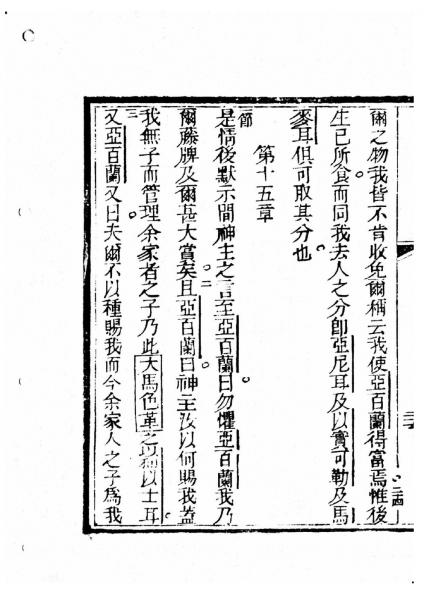 爾之物我皆不肯收免爾稱云我使亞百蘭得富焉惟後二四
生已所食而同我去人之分卽亞尼耳及以實可勒及馬
麥耳俱可取其分也
第十五章
一節
是情後默示間神主之言至亞百蘭曰勿懼亞百蘭我乃
爾藤牌及爾甚大賞矣二且亞百蘭曰神主汝以何賜我蓋
我無子而管理余家者之子乃此大馬色革之以利以士耳
三又亞百蘭又曰夫爾不以種賜我而今余家人之子為我